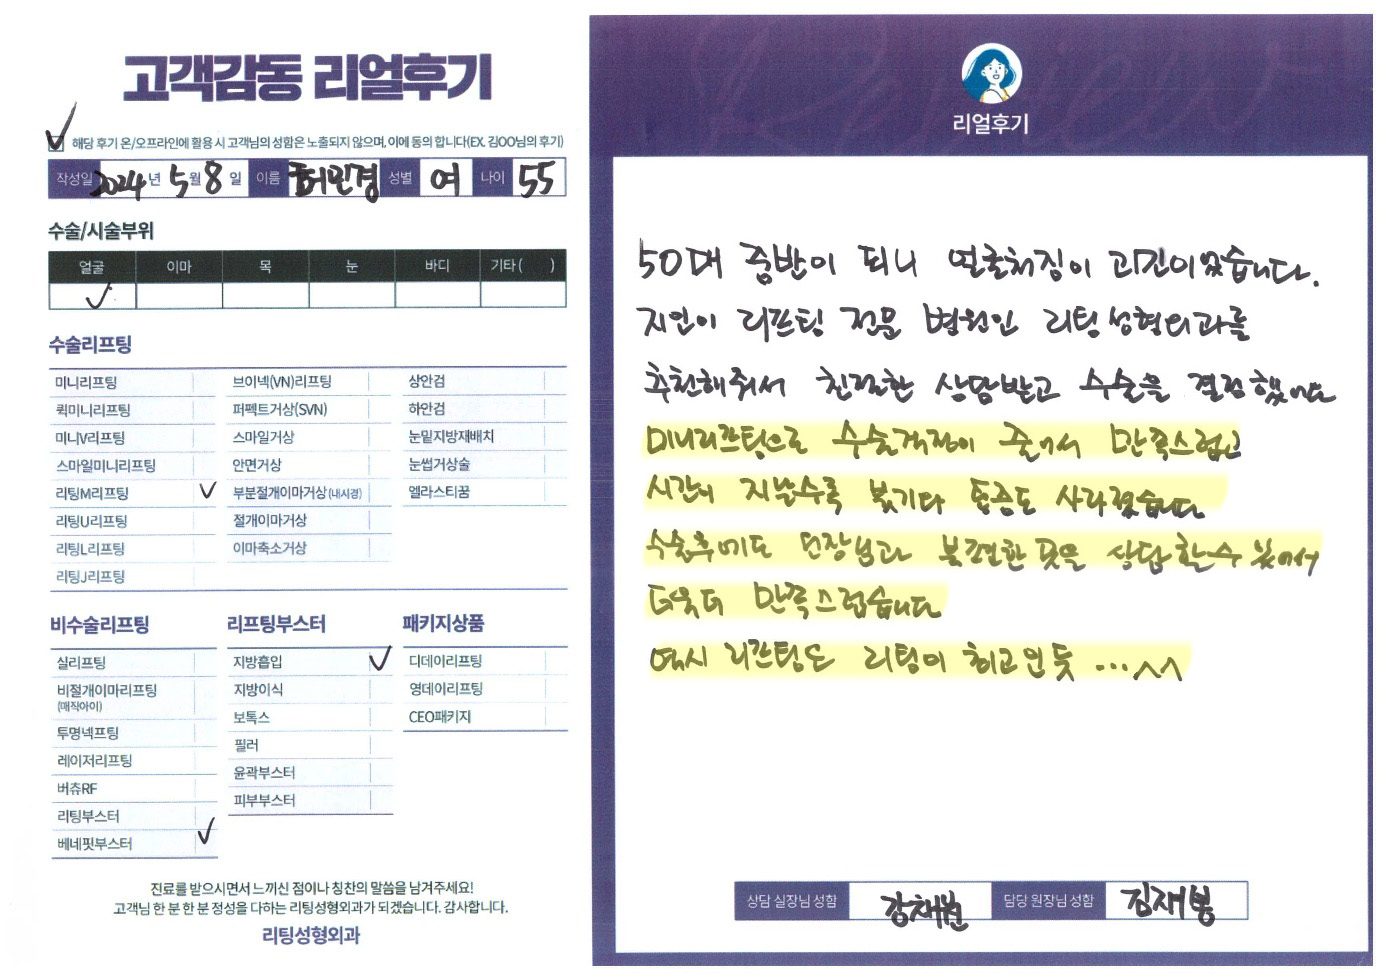 고객감동 리얼후기
해당 후기 온/오프라인에 활용 시 고객님의 성함은 노출되지 않으며, 이에 동의 합니다(EX. 김OO님의 후기)
작성일 2024 년 5 월 8 일 이름 허민경 성별 여 나이 55
수술/시술부위
얼굴 이마 목 눈 바디 기타 ( )
✓
수술리프팅
미니리프팅 브이넥(VN)리프팅 상안검
퀵미니리프팅 퍼펙트거상(SVN) 하안검
미니V리프팅 스마일거상 눈밑지방재배치
스마일미니리프팅 안면거상 눈썹거상술
리팅M리프팅 ✓ 부분절개이마거상(내시경) 엘라스티꿈
리팅U리프팅 절개이마거상
리팅L리프팅 이마축소거상
리팅J리프팅
비수술리프팅
실리프팅
비절개이마리프팅
(매직아이)
투명넥프팅
레이저리프팅
버츄RF
리팅부스터
베네핏부스터 ✓
리프팅부스터
지방흡입 ✓
지방이식
보톡스
필러
윤곽부스터
피부부스터
패키지상품
디데이리프팅
영데이리프팅
CEO패키지
진료를 받으시면서 느끼신 점이나 칭찬의 말씀을 남겨주세요!
고객님 한 분 한 분 정성을 다하는 리팅성형외과가 되겠습니다. 감사합니다.
리팅성형외과
Review
리얼후기
50대 중반이 되니 얼굴처짐이 고민이었습니다.
지인이 리프팅 전문 병원인 리팅성형외과를
추천해줘서 친절한 상담받고 수술을 결정했어요
미니리프팅으로 수술걱정이 줄어서 만족스럽고
시간이 지날수록 붓기나 통증도 사라졌습니다
수술후에도 원장님과 불편한 곳을 상담할수 있어서
더욱더 만족스럽습니다
역시 리프팅은 리팅이 최고인듯 ...^^
상담 실장님 성함 강채원 담당 원장님 성함 김재봉